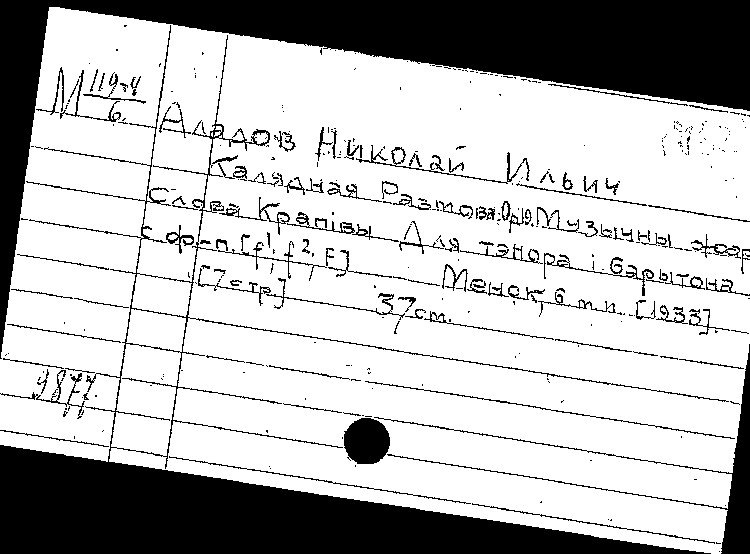 М 119-4
6.
Аладов Николай Ильич
Калядная Размова. Ор.19. Музычны жар
Слова Крапівы Для тэнора і барытона
с фр-п. [f¹, f², F] Менск, б.т.п. [1933].
[7 стр.] 37 cm.
9877.